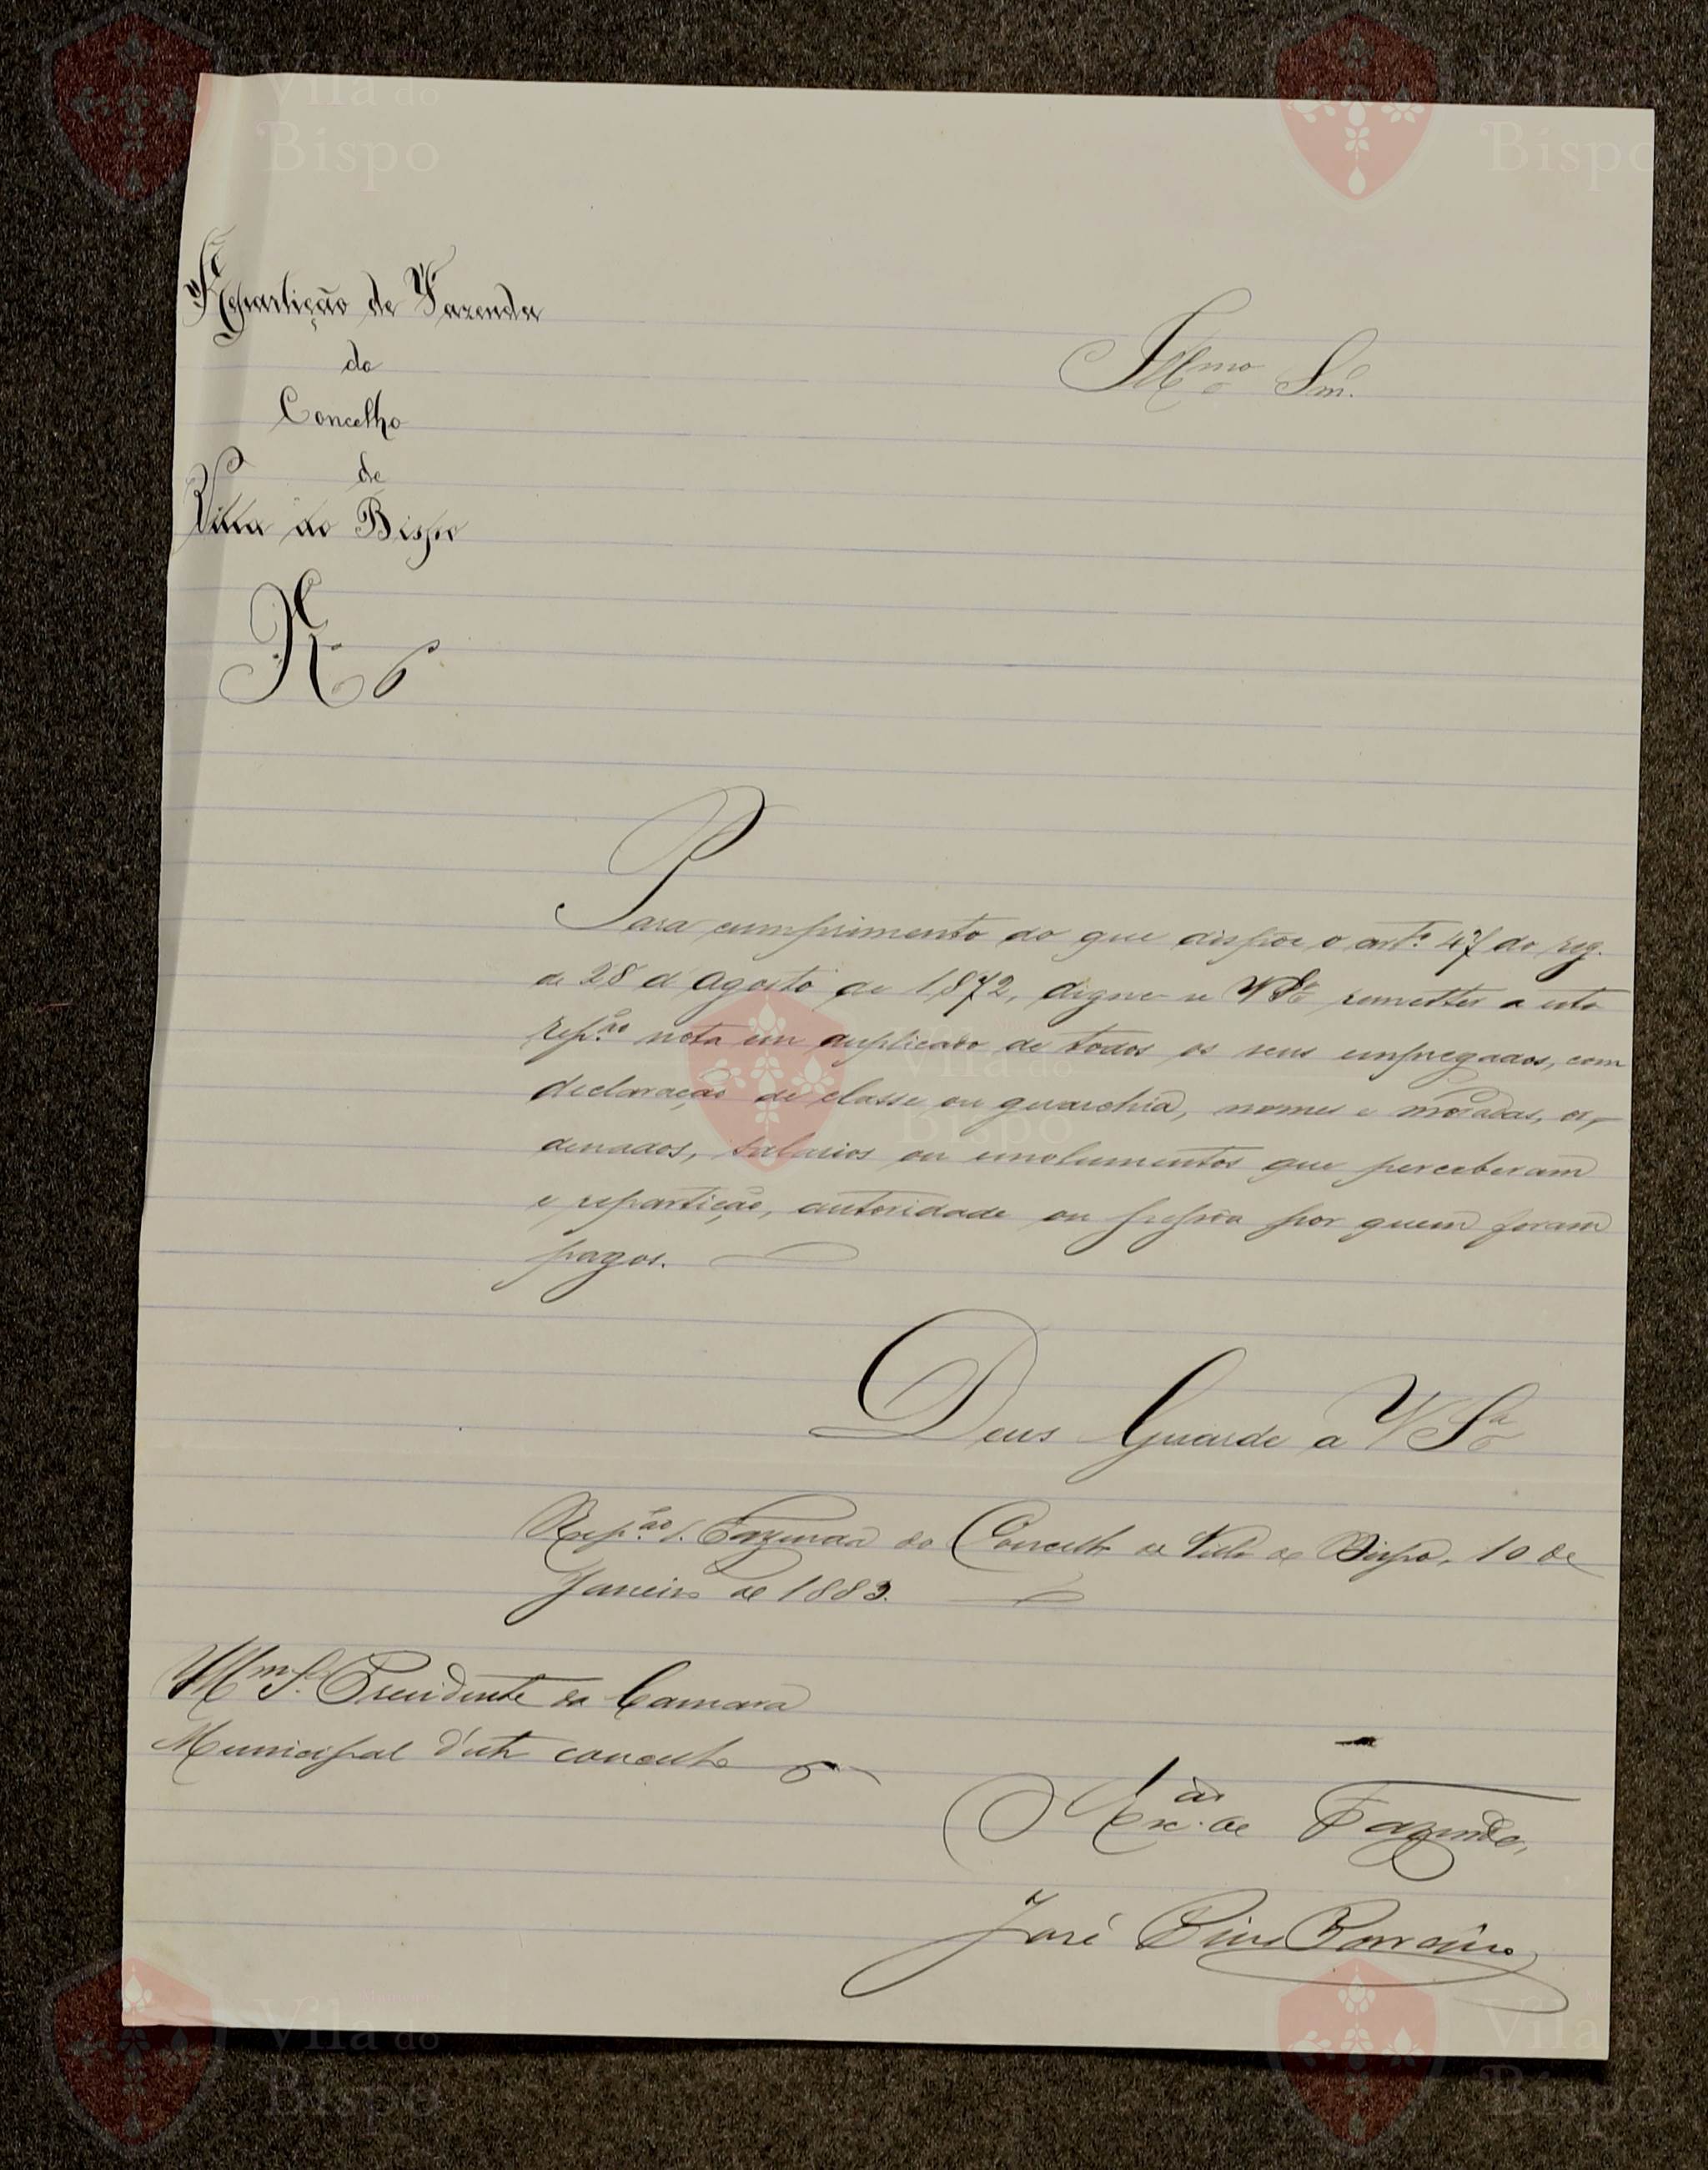 Repartição de Fazenda
do
Concelho
de
Villa do Bispo
N.º 6
Illmo Snr.
Para cumprimento do que dispõe o artº 47 do reg.
de 28 d'Agosto de 1872, digne-se VSª remetter a esta
repção nota em duplicado de todos os seus empregados, com
declaração de classe ou gerarchia, nomes e moradas, or-
denados, salarios ou emolumentos que perceberam
e repartição, autoridade ou pessoa por quem foram
pagos.
Deus Guarde a VSª
Repção de Fazenda do Concelho de Villa do Bispo, 10 de
Janeiro de 1883.
Illmo Sr. Presidente da Camara
Municipal d'este concelho
O Escão de Fazenda,
José
Vila do
Bispo
Bispo
Vila do
Bispo
Vila do
Bispo
Vila do
Bispo